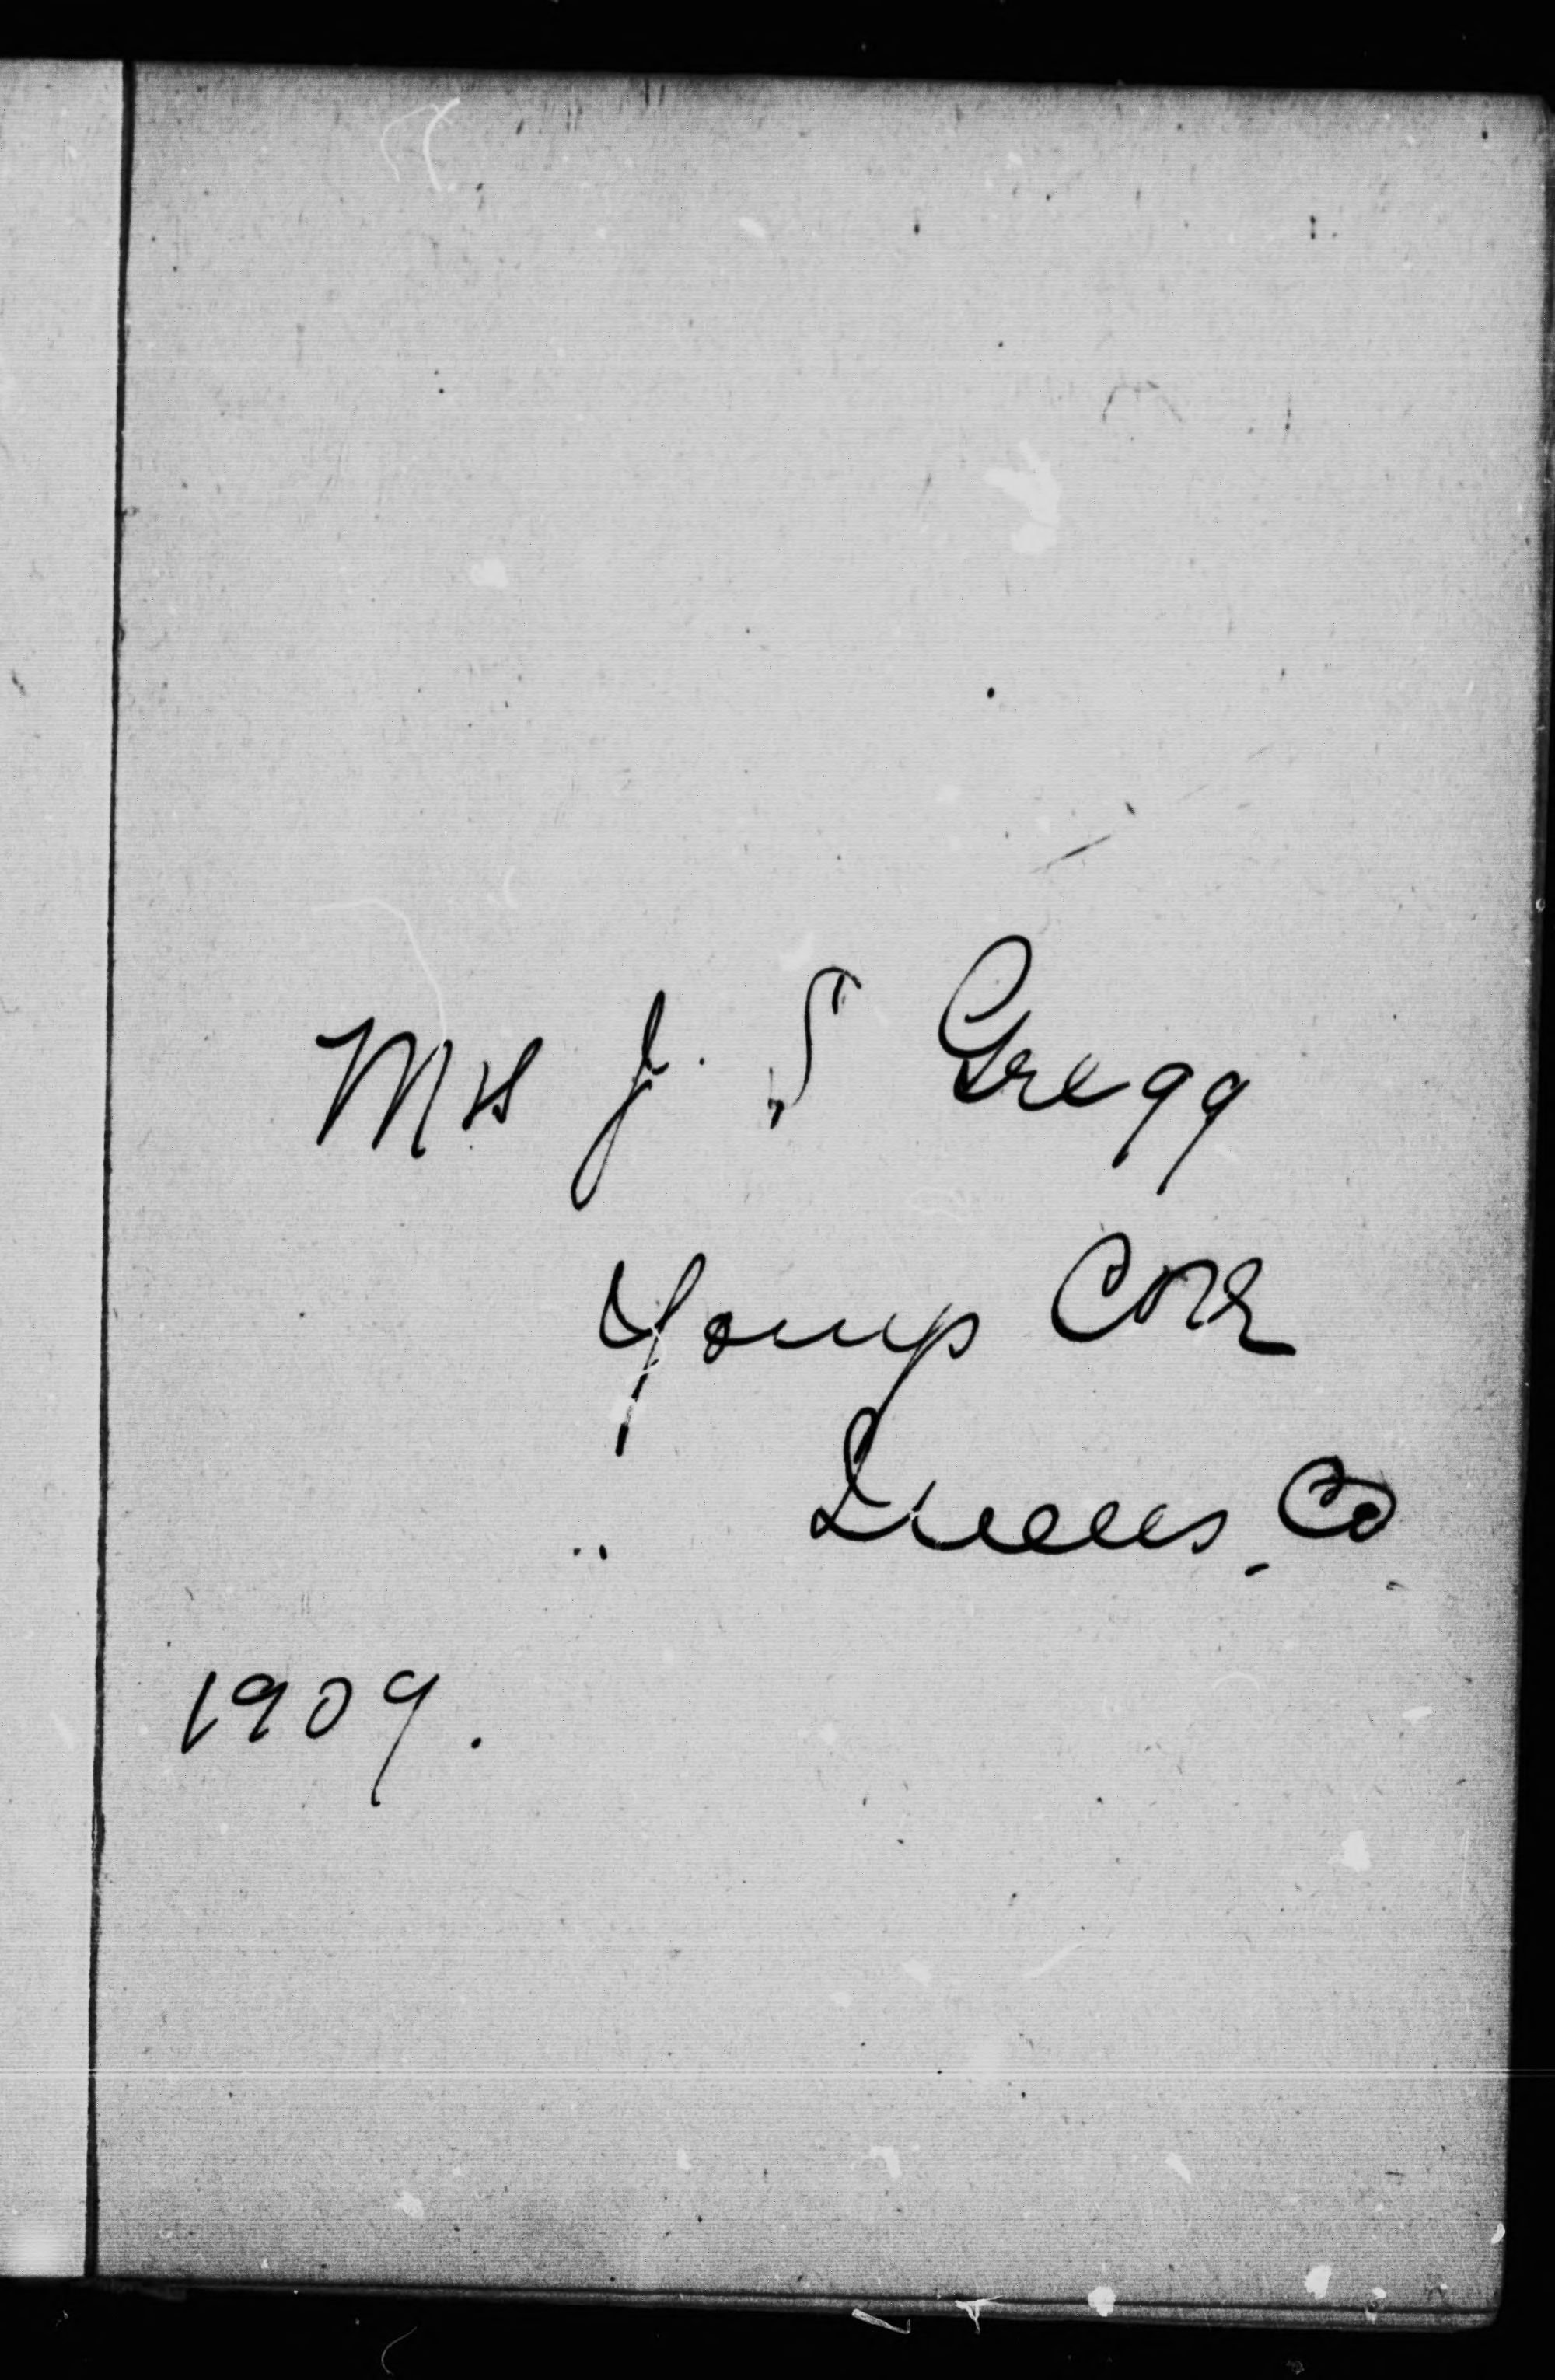 Mrs J. S Gregg
Youngs Cove
Queens. Co
1909.